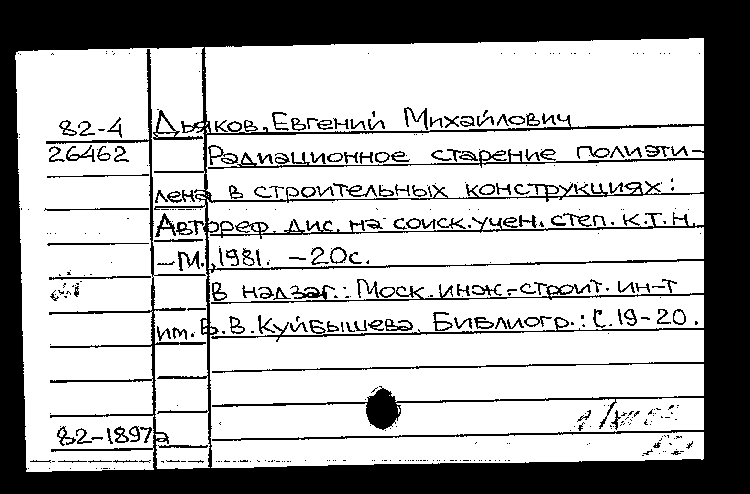 82-4 Дьяков, Евгений Михайлович
26462 Радиационное старение полиэти-
лена в строительных конструкциях:
Автореф. дис. на соиск. учен. степ. к.т.н.
-М., 1981. - 20с.
В надзаг.: Моск. инж.-строит. ин-т
им. В.В. Куйбышева. Библиогр.: С. 19-20.
82-1897а